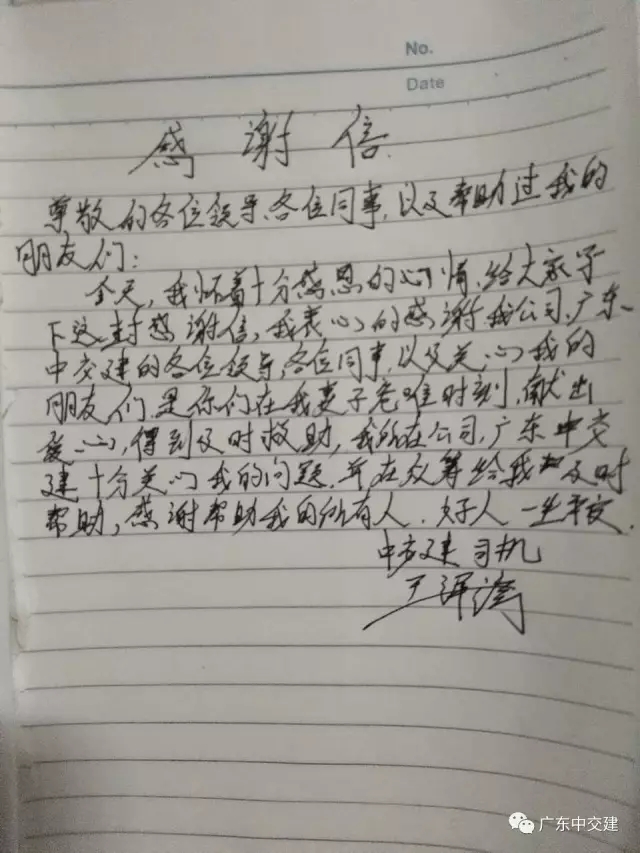 No.
Date
感谢信
尊敬的各位领导、各位同事,以及帮助过我的
朋友们:
今天,我怀着十分感恩的心情,给大家写
下这封感谢信,我衷心的感谢我公司,广东
中交建的各位领导,各位同事,以及关心我的
朋友们,是你们在我妻子危难时刻,献出
爱心,得到及时救助,我所在公司,广东中交
建十分关心我的问题,并在众筹给我及时
帮助,感谢帮助我的所有人,好人一生平安
中交建司机
王
广东中交建